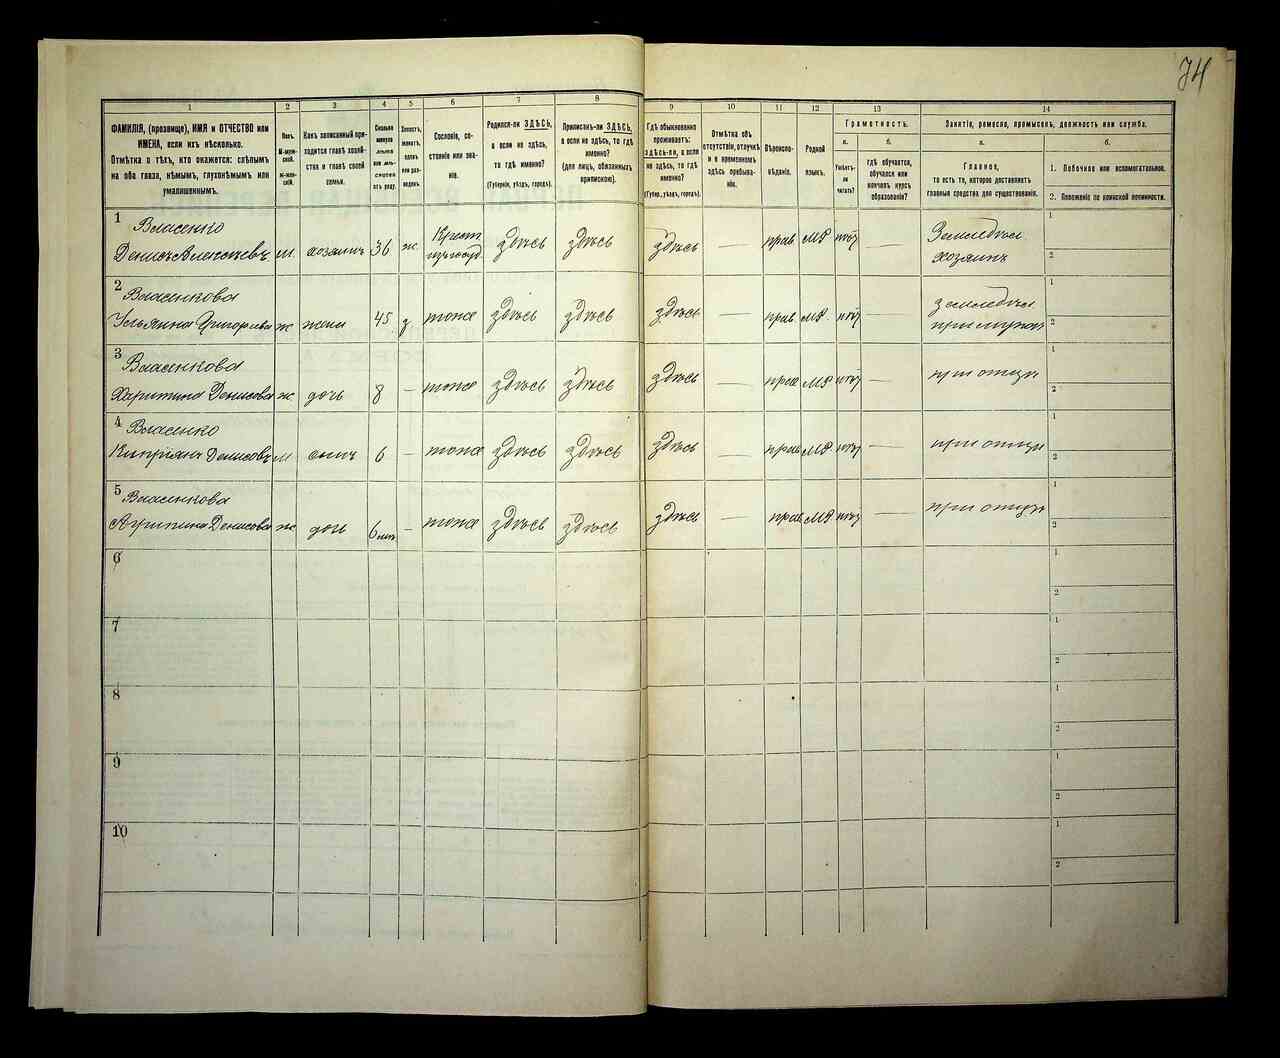 74
1
2
3
4
5
6
7
8
9
10
11
12
13
14
ФАМИЛІЯ, (прозвище), ИМЯ и ОТЧЕСТВО или
ИМЕНА, если ихъ нѣсколько.
Отмѣтка о тѣхъ, кто окажется: слѣпымъ
на оба глаза, нѣмымъ, глухонѣмымъ или
умалишеннымъ.
Полъ.
М-муж-
ской.
Ж-жен-
скій.
Какъ записанный при-
ходится главѣ хозяй-
ства и главѣ своей
семьи.
Сколько
минуло
лѣтъ
или мѣ-
сяцевъ
отъ роду.
Холостъ,
женатъ,
вдовъ
или раз-
веденъ.
Сословіе, со-
стояніе или зва-
ніе.
Родился-ли ЗДѢСЬ,
а если не здѣсь,
то гдѣ именно?
(Губернія, уѣздъ, городъ).
Приписанъ-ли ЗДѢСЬ,
а если не здѣсь, то гдѣ
именно?
(для лицъ, обязанныхъ
припискою).
Гдѣ обыкновенно
проживаетъ:
здѣсь-ли, а если
не здѣсь, то гдѣ
именно?
(Губерн., уѣздъ, городъ).
Отмѣтка объ
отсутствіи, отлучкѣ
и о временномъ
здѣсь пребыва-
ніи.
Вѣроиспо-
вѣданіе.
Родной
языкъ.
Грамотность.
а.
б.
Умѣетъ-
ли
читать?
гдѣ обучается,
обучался или
кончилъ курсъ
образованія?
Занятіе, ремесло, промыселъ, должность или служба.
а.
б.
Главное,
то есть то, которое доставляетъ
главныя средства для существованія.
1. Побочное или вспомогательное.
2. Положеніе по воинской повинности.
1
Власенко
Денисъ Алексѣевъ м. хозяинъ 36 ж. Крест. здѣсь здѣсь здѣсь — прав. МР нѣтъ — Земледѣл.
хозяинъ
1
2
2
Власенкова
Ульяна Григорьева ж жена 45 з тоже здѣсь здѣсь здѣсь — прав. МР. нѣтъ — земледѣл.
при мужѣ
1
2
3
Власенкова
Харитина Денисова ж дочь 8 — тоже здѣсь здѣсь здѣсь — прав МР нѣтъ — при отцѣ
1
2
4
Власенко
Кипріянъ Денисовъ м сынъ 6 — тоже здѣсь здѣсь здѣсь — прав МР нѣтъ — при отцѣ
1
2
5
Власенкова
Агрипина Денисова ж дочь 6 мѣс — тоже здѣсь здѣсь здѣсь — прав МР нѣтъ — при отцѣ
1
2
6
1
2
7
1
2
8
1
2
9
1
2
10
1
2